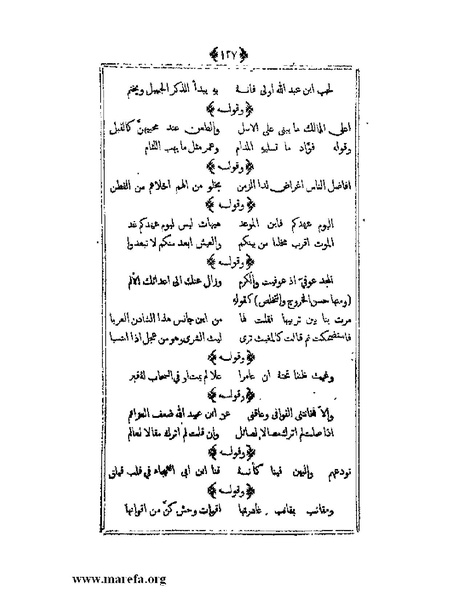 ﴿١٢٧﴾
لحب ابن عبد الله اولى فانه به يبدأ الذكر الجميل ويختم
﴿وقوله﴾
اعلى الممالك ما يبنى على الاسل والطعن عند محبيهنّ كالقبل
وقوله فؤاد ما تسليه المدام وعمر مثل ما يهب اللئام
﴿وقوله﴾
افاضل الناس اغراض لدا الزمن يخلو من الهم اخلاهم من الفطن
﴿وقوله﴾
اليوم عهدكم فاين الموعد هيهات ليس ليوم عهدكم غد
الموت اقرب مخلبا من بينكم والعيش ابعد منكم لا تبعدوا
﴿وقوله﴾
المجد عوفي اذ عوفيت والكرم وزال عنك الى اعدائك الألم
(ومنها حسن الخروج والتخلص) كقوله
مرت بنا بين تربيها فقلت لها من اين جانس هذا الشادن العربا
فاستضحكت ثم قالت كالمغيث ترى ليث الشرى وهو من عجل اذا انتسبا
﴿وقوله﴾
وغيث ظننا تحته ان عامرا علا لم يمت او في السحاب له قبر
﴿وقوله﴾
والّا فخانتني القوافي وعاقني عن ابن عبيد الله ضعف العزائم
اذا صلت لم اترك مصالا لصائل وإن قلت لم اترك مقالا لعالم
﴿وقوله﴾
نودعهم والبين فينا كأنه قنا ابن ابي الهيجاء في قلب فيلق
﴿وقوله﴾
ومقانب بمقانب غادرتها اقوات وحش كنّ من اقواتها
www.marefa.org